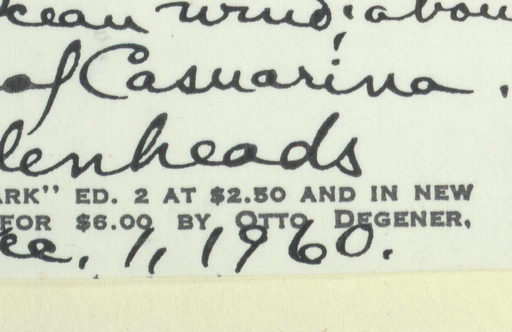 ocean wind; abou
of Casuarina.
lenheads
ARK" ED. 2 AT $2.50 AND IN NEW
FOR $6.00 BY OTTO DEGENER,
Dec. 1, 1960.